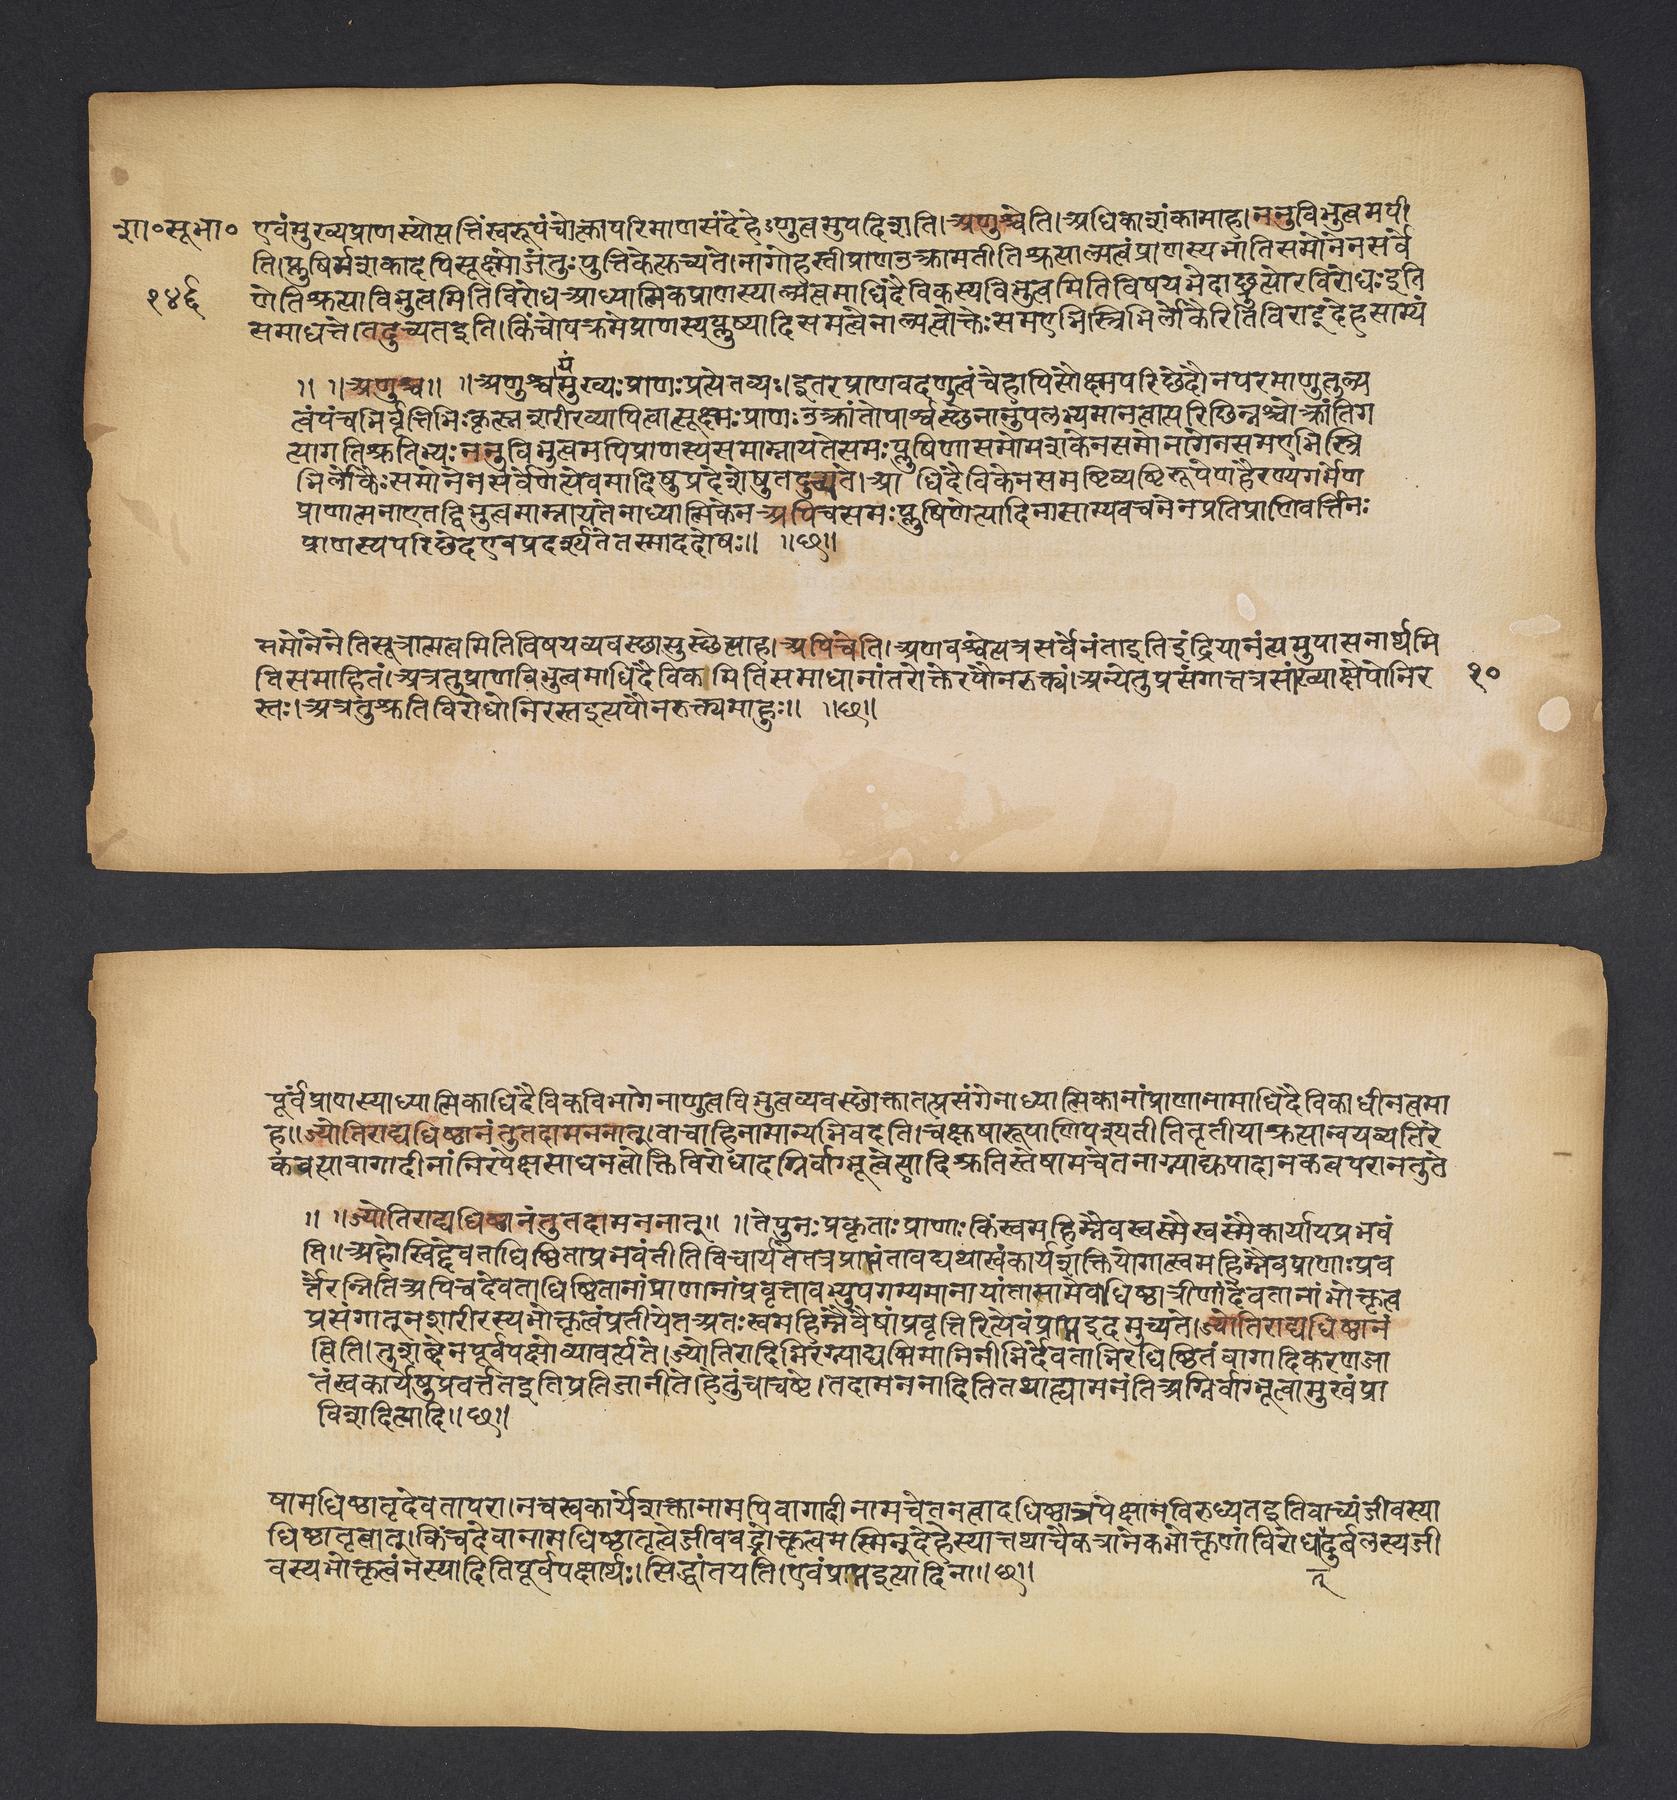 शा॰सू॰भा॰ एवंमुख्यप्राणस्योत्पत्तिंस्वरूपंचोत्कापरिमाणसंदेहेऽणुत्वमुपदिशति।अणुश्चेति।अधिकाशंकामाह।ननुविभुत्वमपी
ति।प्लुषिर्मशकादपिसूक्ष्मोजंतुःपुत्तिकेत्युच्यते।नागोहस्तीप्राणउत्क्रामतीतिश्रुत्याल्पत्वंप्राणस्यभातिसमोनेनसर्वे
१४६ णेतिश्रुत्याविभुत्वमितिविरोधआध्यात्मिकप्राणस्याल्पत्वमाधिदैविकस्यविभुत्वमितिविषयभेदाच्छ्रुत्योरविरोधःइति
समाधत्ते।तदुच्यतइति।किंचोपक्रमेप्राणस्यप्लुष्यादिसमत्वेनाल्पत्वोक्तेःसमएभिस्त्रिभिर्लोकैरितिविराड्देहसाम्यं
॥ ॥अणुश्च॥ ॥अणुश्चायंमुख्यःप्राणःप्रत्येतव्यः।इतरप्राणवदणुत्वंचेहापिसौक्ष्म्यपरिछेदौनपरमाणुतुल्य
त्वंपंचभिर्वृत्तिभिःकृत्स्नशरीरव्यापित्वात्सूक्ष्मःप्राणःउत्क्रांतोपार्श्वस्छेनानुपलभ्यमानत्वात्परिछिन्नश्चोत्क्रांतिग
त्यागतिश्रुतिभ्यःननुविभुत्वमपिप्राणस्यसमाम्नायतेसमःप्लुषिणासमोमशकेनसमोनागेनसमएभिस्त्रि
भिर्लोकैःसमोनेनसर्वेणेत्येवमादिषुप्रदेशेषुतदुच्यते।आधिदैविकेनसमष्टिव्यष्टिरूपेणहैरण्यगर्भेण
प्राणात्मनाएतद्विभुत्वमाम्नायतेनाध्यात्मिकेनअपिचसमःप्लुषिणेत्यादिनासाम्यवचनेनप्रतिप्राणिवर्त्तिनः
प्राणस्यपरिछेदएवप्रदर्श्यतेतस्माददोषः॥ ॥छ॥
समोनेनेतिसूत्रात्मत्वमितिविषयव्यवस्छासुस्छेत्याह।अपिचेति।अणवश्चेत्यत्रसर्वेनंताइतिइंद्रियानंत्यमुपासनार्थमि
तिसमाहितं।अत्रतुप्राणविभुत्वमाधिदैविकमितिसमाधानांतरोक्तेरपौनरुक्त्यं।अन्येतुप्रसंगात्तत्रसांख्याक्षेपोनिर १०
स्तः।अत्रतुश्रुतिविरोधोनिरस्तइत्यपौनरुक्त्यमाहुः॥ ॥छ॥
पूर्वंप्राणस्याध्यात्मिकाधिदैविकविभागेनाणुत्वविभुत्वव्यवस्छोक्तातत्प्रसंगेनाध्यात्मिकानांप्राणानामाधिदैविकाधीनत्वमा
ह॥ज्योतिराद्यधिष्ठानंतुतदामननात्।वाचाहिनामान्यभिवदति।चक्षुषारूपाणिपश्यतीतितृतीयाश्रुत्यान्वयव्यतिरे
कवत्यावागादीनांनिरपेक्षसाधनत्वोक्तिविरोधादग्निर्वाग्भूत्वेत्यादिश्रुतिस्तेषामचेतनाग्न्याद्युपादानकत्वपरानतुते
॥ ॥ज्योतिराद्यधिष्ठानंतुतदामननात्॥ ॥तेपुनःप्रकृताःप्राणाःकिंस्वमहिम्नैवस्वस्मैस्वस्मैकार्यायप्रभवं
ति॥अहोस्विद्देवताधिष्ठिताप्रभवंतीतिविचार्यतेतत्रप्राप्तंतावद्यथास्वंकार्यशक्तियोगात्स्वमहिम्नैवप्राणाःप्रव
र्त्तेरन्नितिअपिचदेवताधिष्ठितानांप्राणानांप्रवृत्तावभ्युपगम्यमानायांतासामेवाधिष्ठात्रीणांदेवतानांभोक्तृत्व
प्रसंगात्नशारीरस्यभोक्तृत्वंप्रतीयेतअतःस्वमहिम्नैवैषांप्रवृत्तिरित्येवंप्राप्तइदमुच्यते।ज्योतिराद्यधिष्ठानं
त्विति।तुशब्देनपूर्वपक्षोव्यावर्त्यते।ज्योतिरादिभिरग्न्याद्यभिमानिनीभिर्देवताभिरधिष्ठितंवागादिकरणजा
तंस्वकार्येषुप्रवर्त्ततइतिप्रतिजानीते।हेतुंचाचष्टे।तदामननादितितथाह्यामनंतिअग्निर्वाग्भूत्वामुखंप्रा
विशदित्यादि॥छ॥
षामधिष्ठातृदेवतापरा।नचस्वकार्येशक्तानामपिवागादीनामचेतनत्वादधिष्ठात्रपेक्षानविरुध्यतइतिवाच्यंजीवस्या
धिष्ठातृत्वात्।किंचदेवानामधिष्ठातृत्वेजीववद्भोक्तृत्वमस्मिन्देहेस्यात्तथाचैकत्रानेकभोक्तृणांविरोधात्दुर्बलस्यजी
वस्यभोक्तृत्वंनस्यादितिपूर्वपक्षार्थः।सिद्धांतयति।एवंप्राप्तइत्यादिना॥छ॥